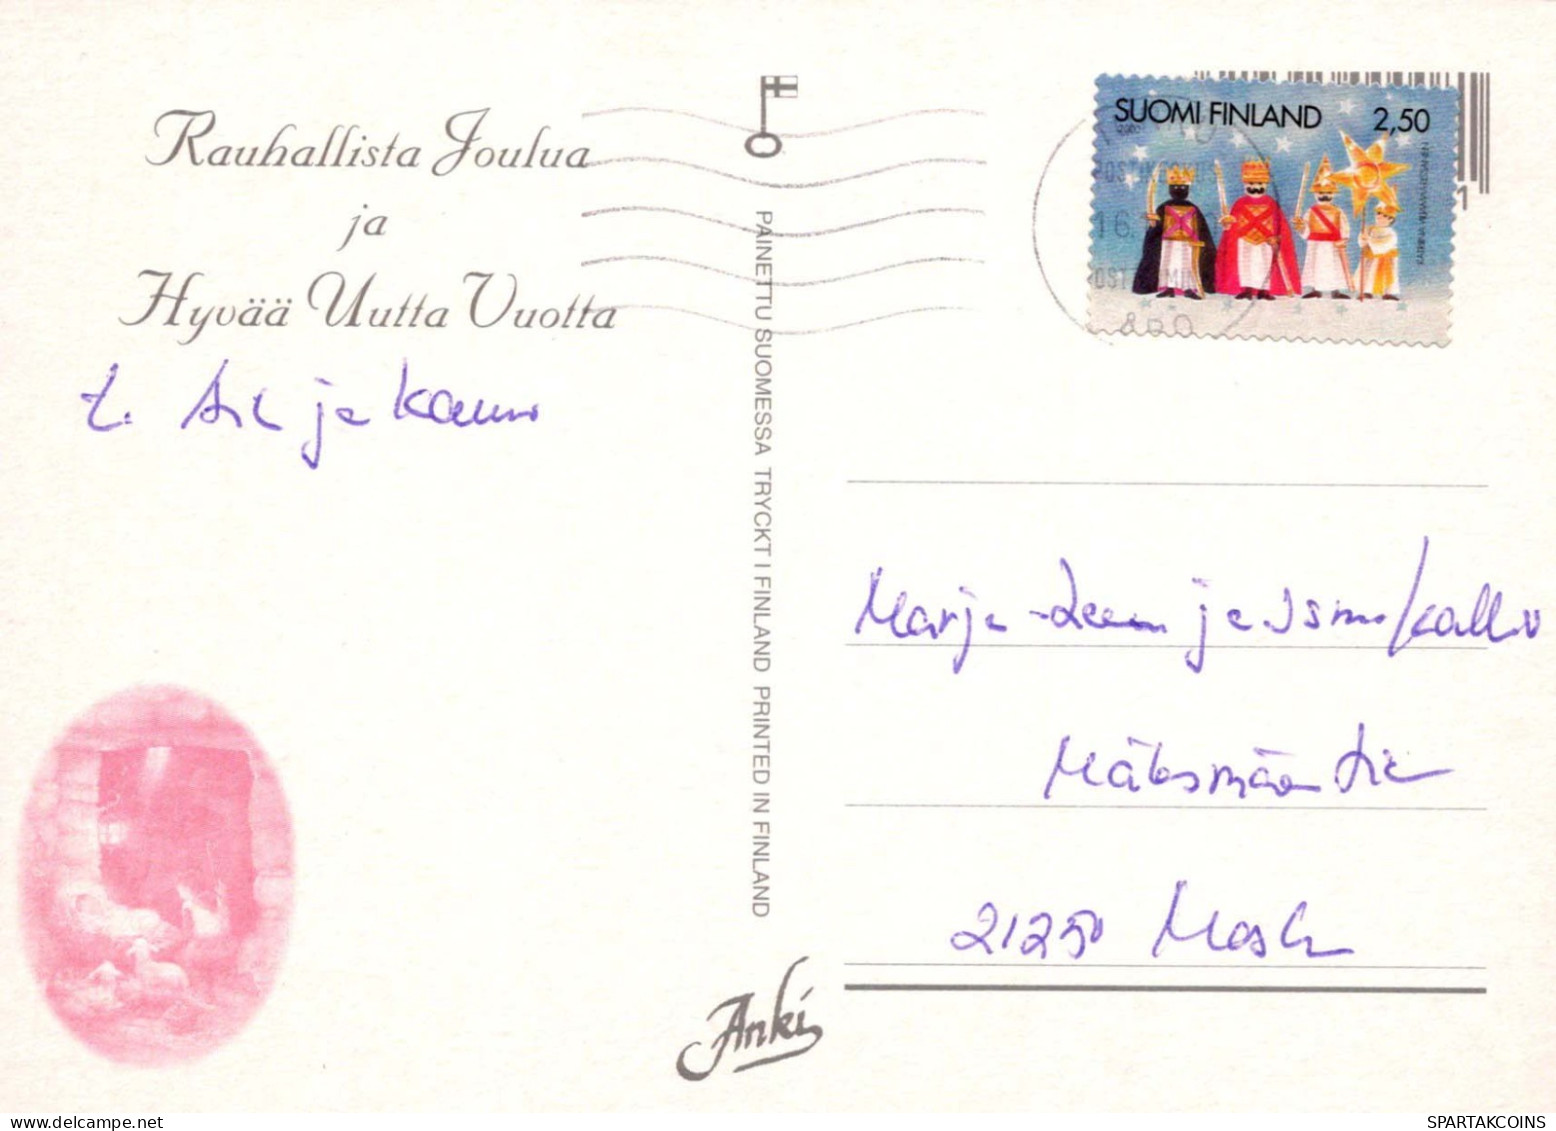 Rauhallista Joulua
ja
Hyvää Uutta Vuotta
t. ja Kauno
PAINETTU SUOMESSA TRYCKT I FINLAND PRINTED IN FINLAND
Anki
SUOMI FINLAND 2,50
16.
1
Marja-Leena ja Ismo Kallio
21250 Masku
SPARTAKCOINS